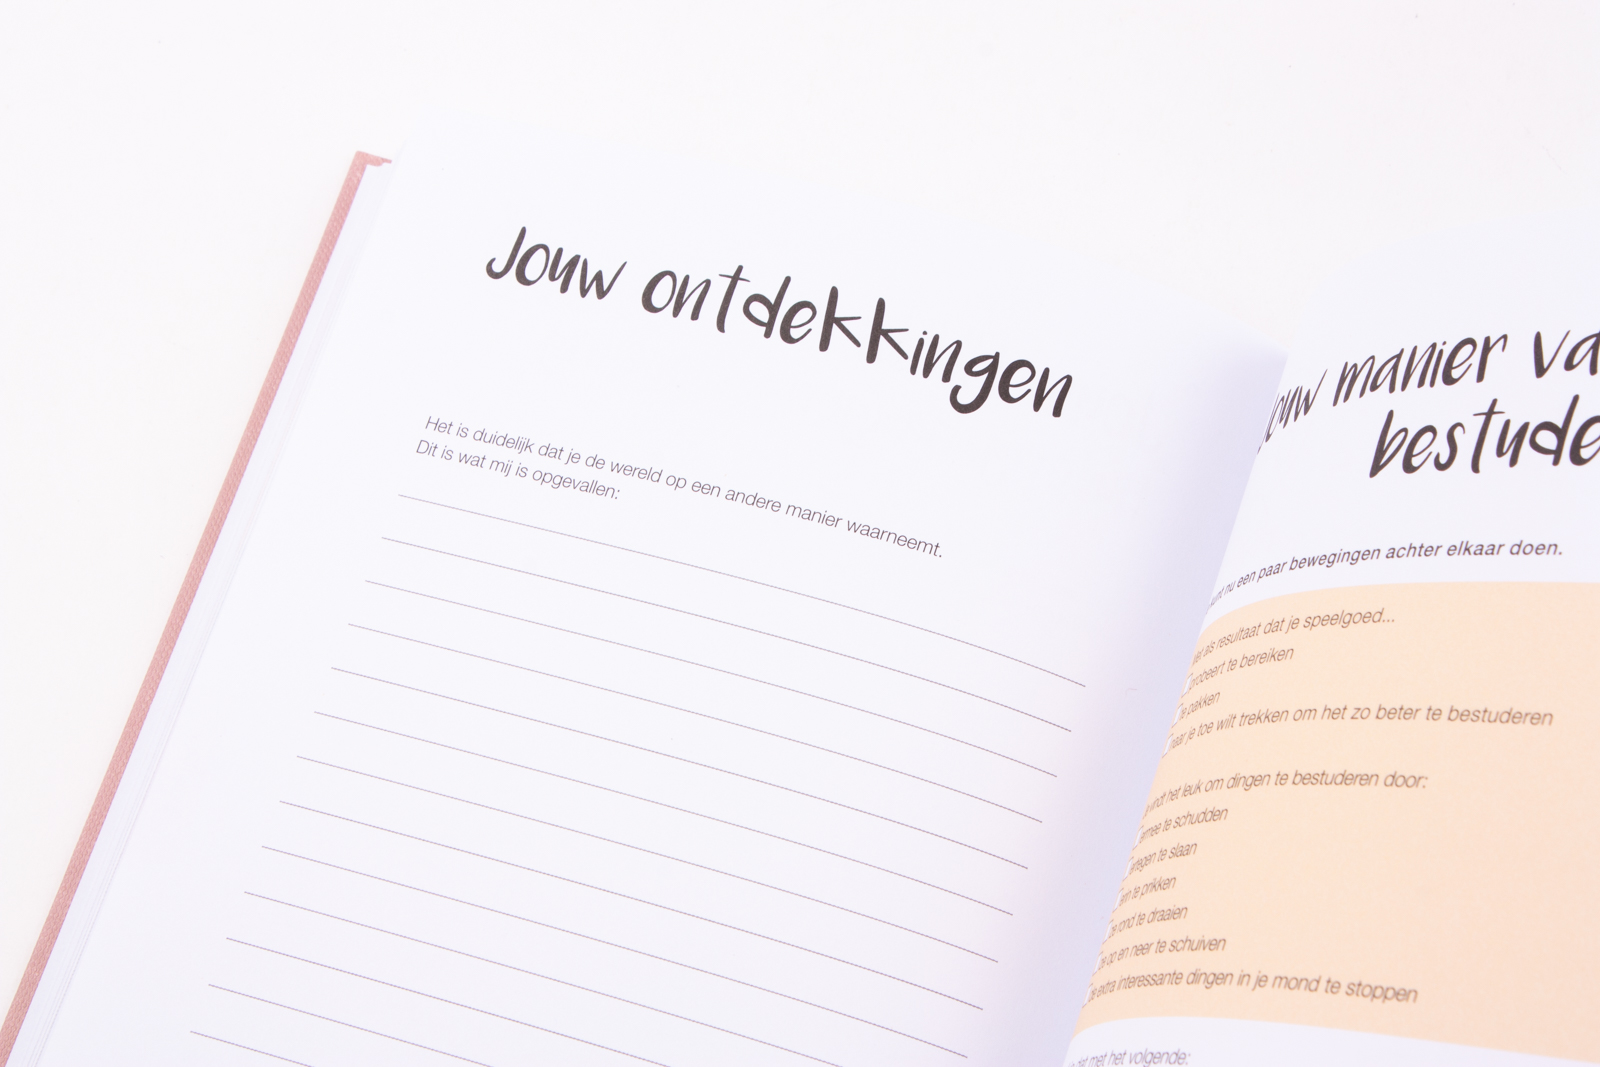 Jouw ontdekkingen
Het is duidelijk dat je de wereld op een andere manier waarneemt.
Dit is wat mij is opgevallen:
manier
nu een paar bewegingen achter elkaar doen.
als resultaat dat je speelgoed...
probeert te bereiken
te pakken
naar je toe wilt trekken om het zo beter te bestuderen
vindt het leuk om dingen te bestuderen door:
ermee te schudden
ertegen te slaan
erin te prikken
ze rond te draaien
ze op en neer te schuiven
de extra interessante dingen in je mond te stoppen
dat met het volgende: